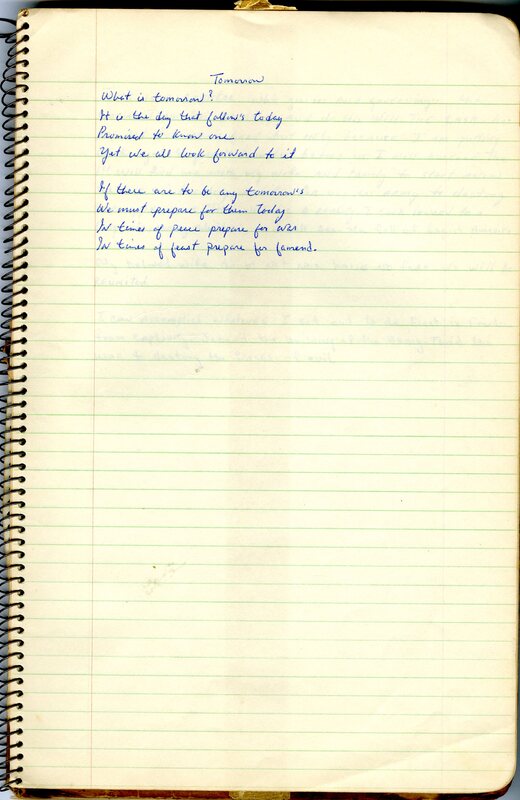 Tomorrow
What is tomorrow?
It is the day that follow's today
Promised to know one
Yet we all look forward to it
If there are to be any tomorrow's
We must prepare for them today
In times of peace prepare for war
In times of feast prepare for famend.